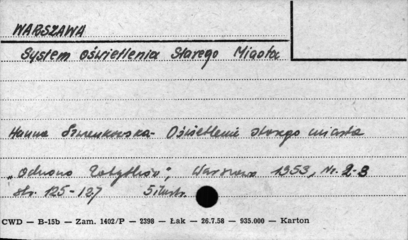 WARSZAWA
System oświetlenia Starego Miasta
Hanna Szwankowska - Oświetlenie starego miasta
„Ochrona Zabytków", Warszawa 1953, Nr. 2-3
str. 125-127 5 ilustr.
CWD — B-15b — Zam. 1402/P — 2398 — Łak — 26.7.58 — 935.000 — Karton